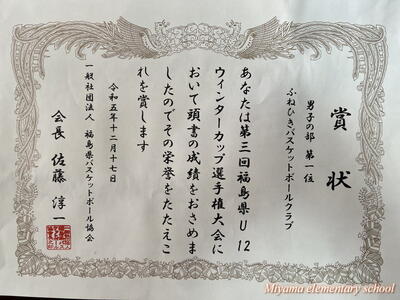 賞状
男子の部 第一位
ふねひきバスケットボールクラブ
あなたは第三回福島県U12
ウィンターカップ選手権大会に
おいて頭書の成績をおさめま
したのでその栄誉をたたえこ
れを賞します
令和五年十二月十七日
一般社団法人 福島県バスケットボール協会
会長 佐藤淳一
Miyama elementary school